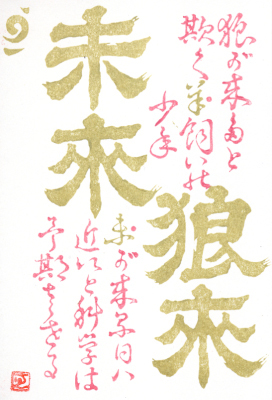 狼が来たと
欺く羊飼いの
少年
狼来
未来
未が来る日は
近いと科学は
予期せざる